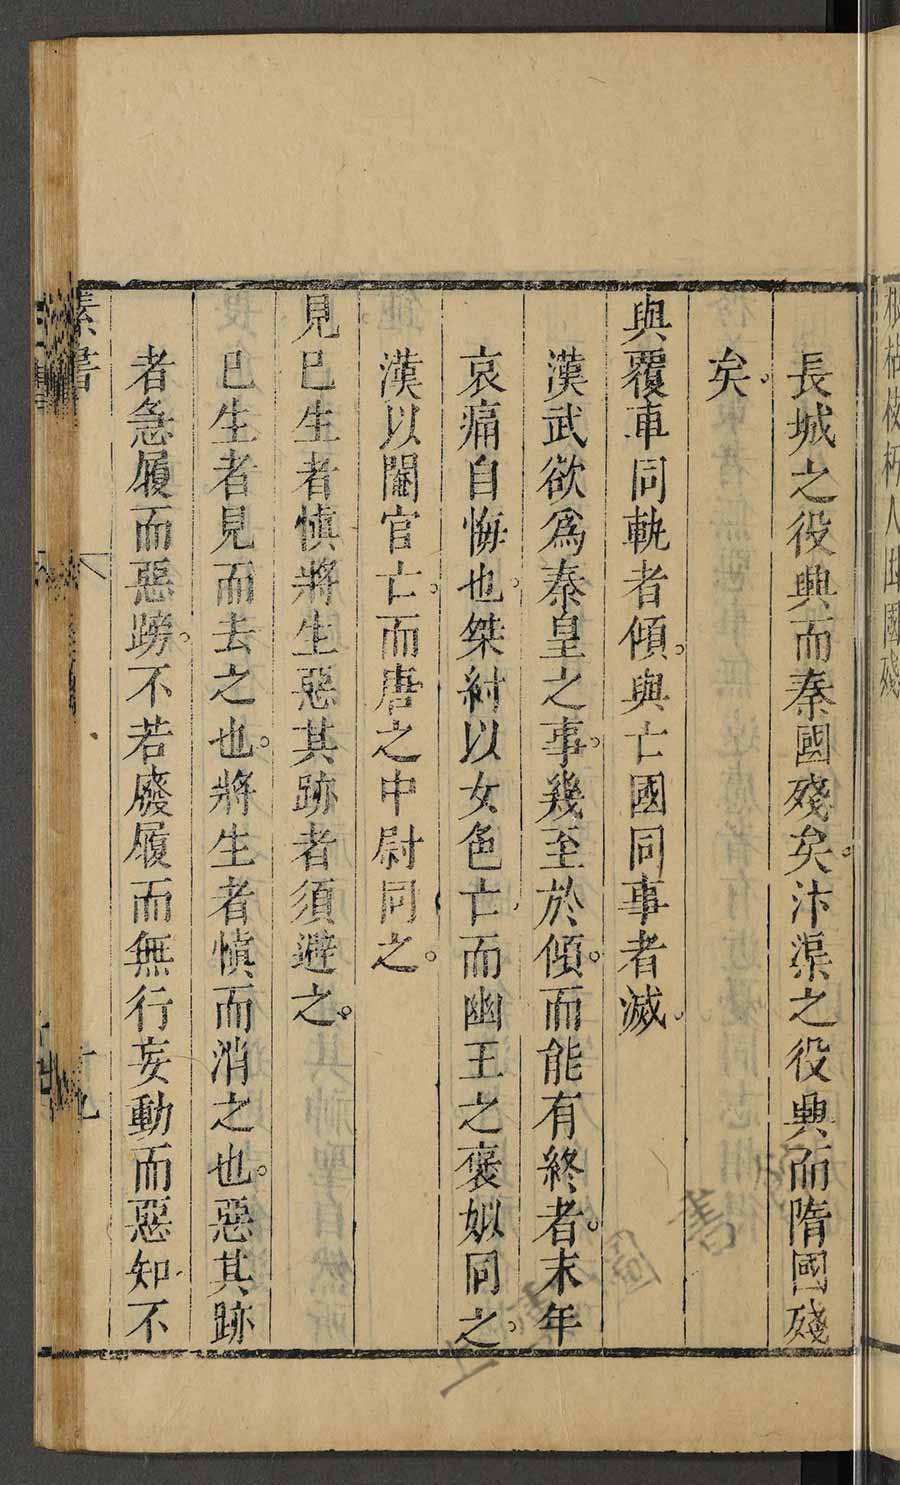 根枯枝朽人困國殘
長城之役興而秦國殘矣。汴渠之役興而隋國殘
矣。
與覆車同軌者傾。與亡國同事者滅。
漢武欲爲秦皇之事。幾至於傾。而能有終者。末年
哀痛自悔也。桀紂以女色亡。而幽王之褒姒同之。
漢以閹官亡。而唐之中尉同之。
見已生者慎將生惡其跡者須避之。
已生者見而去之也。將生者慎而消之也。惡其跡
者急履而惡蹐。不若廢履而無行妄動而惡知不
素書
十九